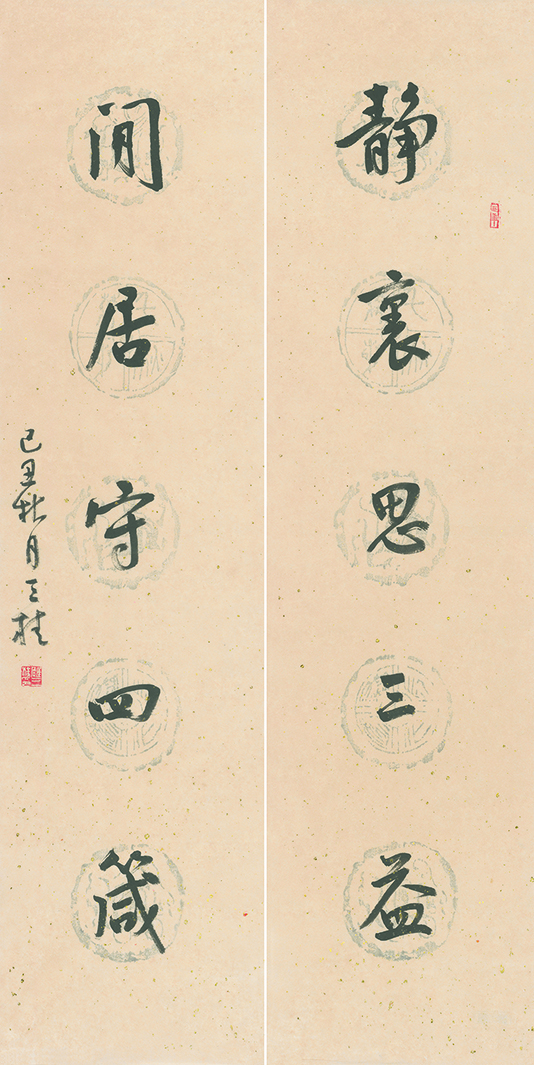 静裏思三益
閒居守四箴
己丑秋月三桂